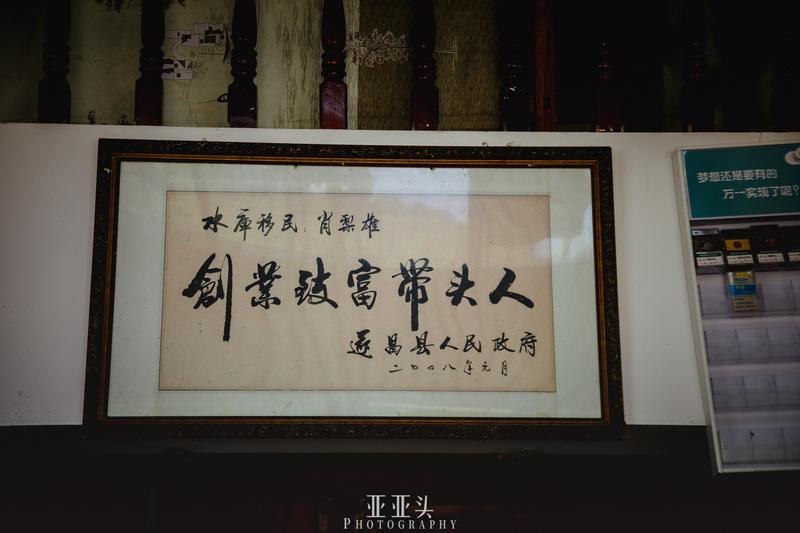 水庫移民：肖梨雄
創業致富带头人
遂昌县人民政府
二〇〇八年元月
梦想还是要有的
万一实现了呢?
亚亚头
PHOTOGRAPHY